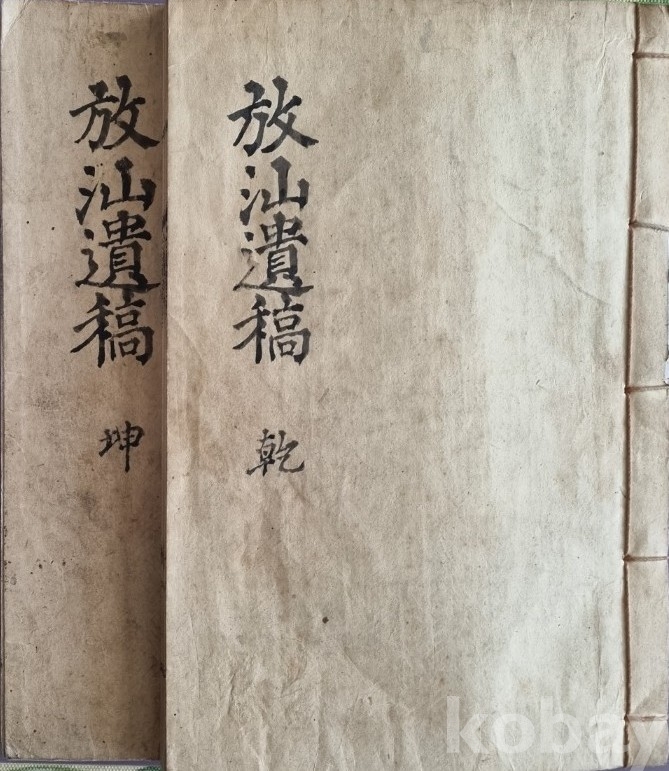 放汕遺稿
乾
放汕遺稿
坤
kobay